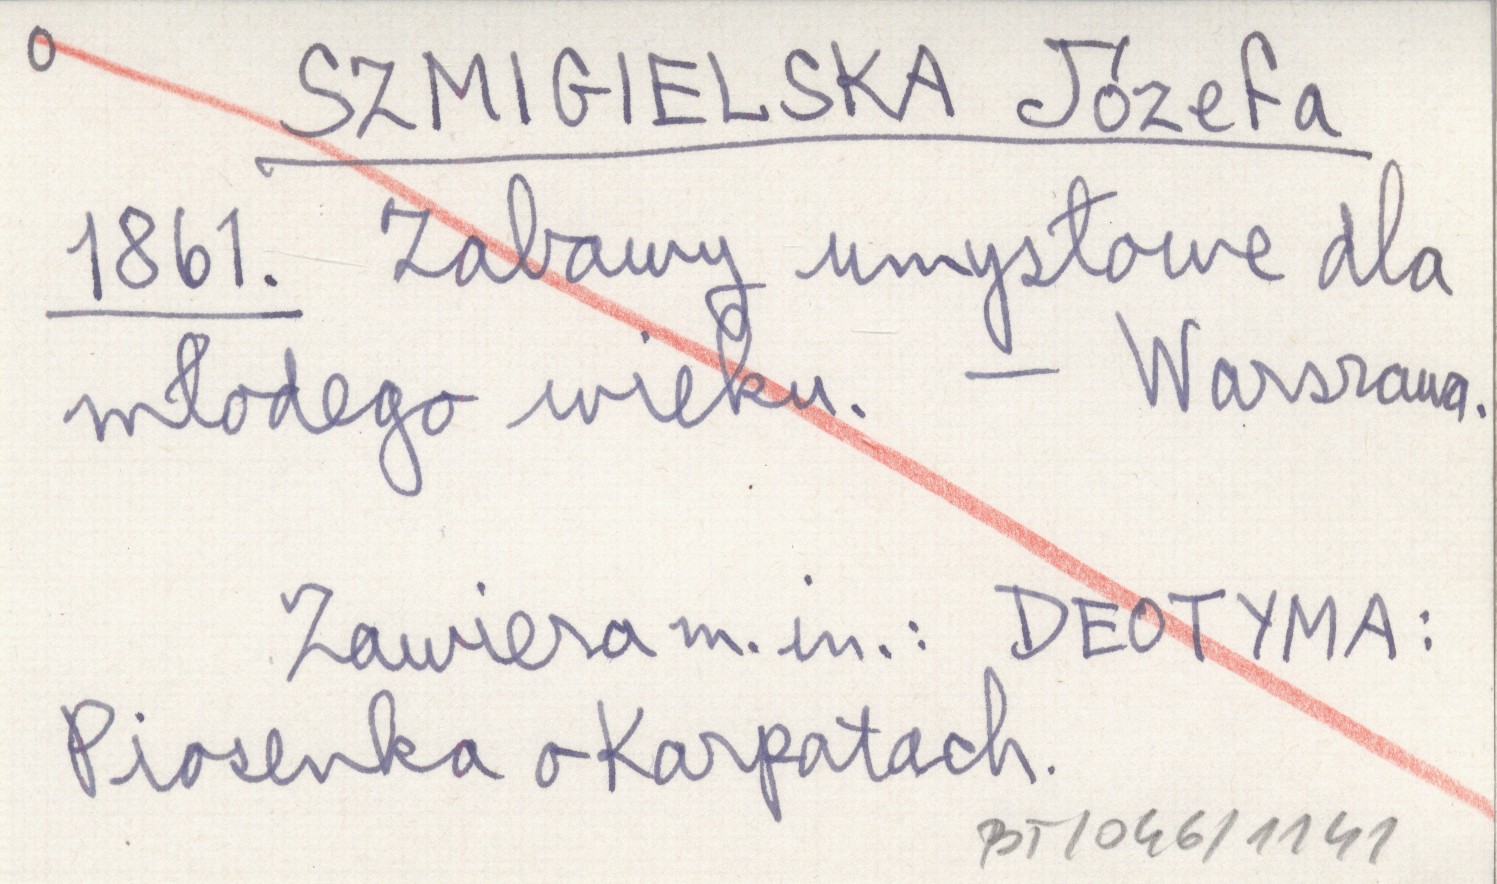 O
SZMIGIELSKA Józefa
1861. Zabawy umysłowe dla
młodego wieku. — Warszawa.
Zawiera m.in.: DEOTYMA:
Piosenka o Karpatach.
BT/046/1141